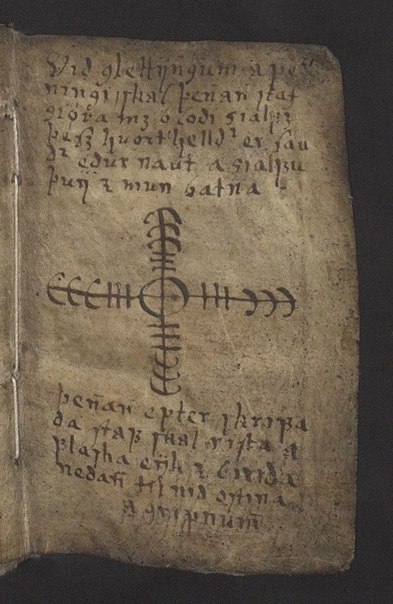 Vid glettijngum a pe
ningi skal þeñan staf
giöra mz blodi sialfz
þess hvort helldr er sau
dr edur naut a sialfu
þvij z mun batna
þeñan epter skrifa
da staf skal rista a
eijk z binda
nedañ til vid
a gripnum